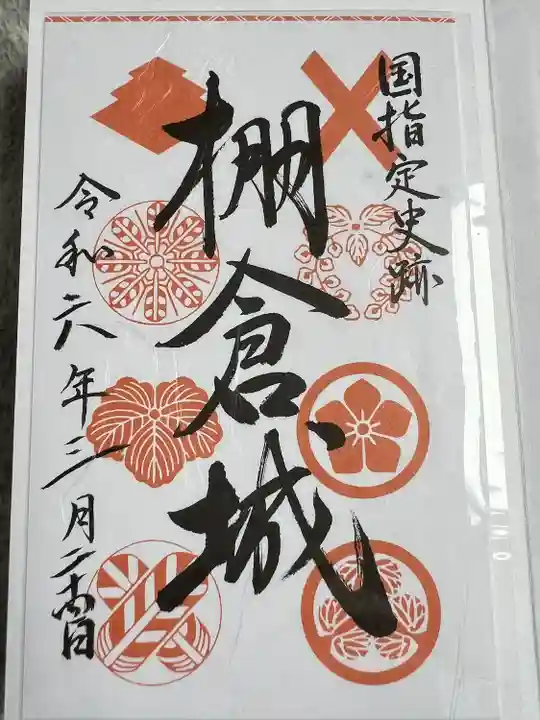 国指定史跡
棚倉城
令和六年三月二十四日